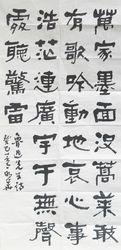 萬家墨面沒蒿萊敢
有歌吟動地哀心事
浩茫連廣宇于無聲
處聽驚雷
魯迅先生詩